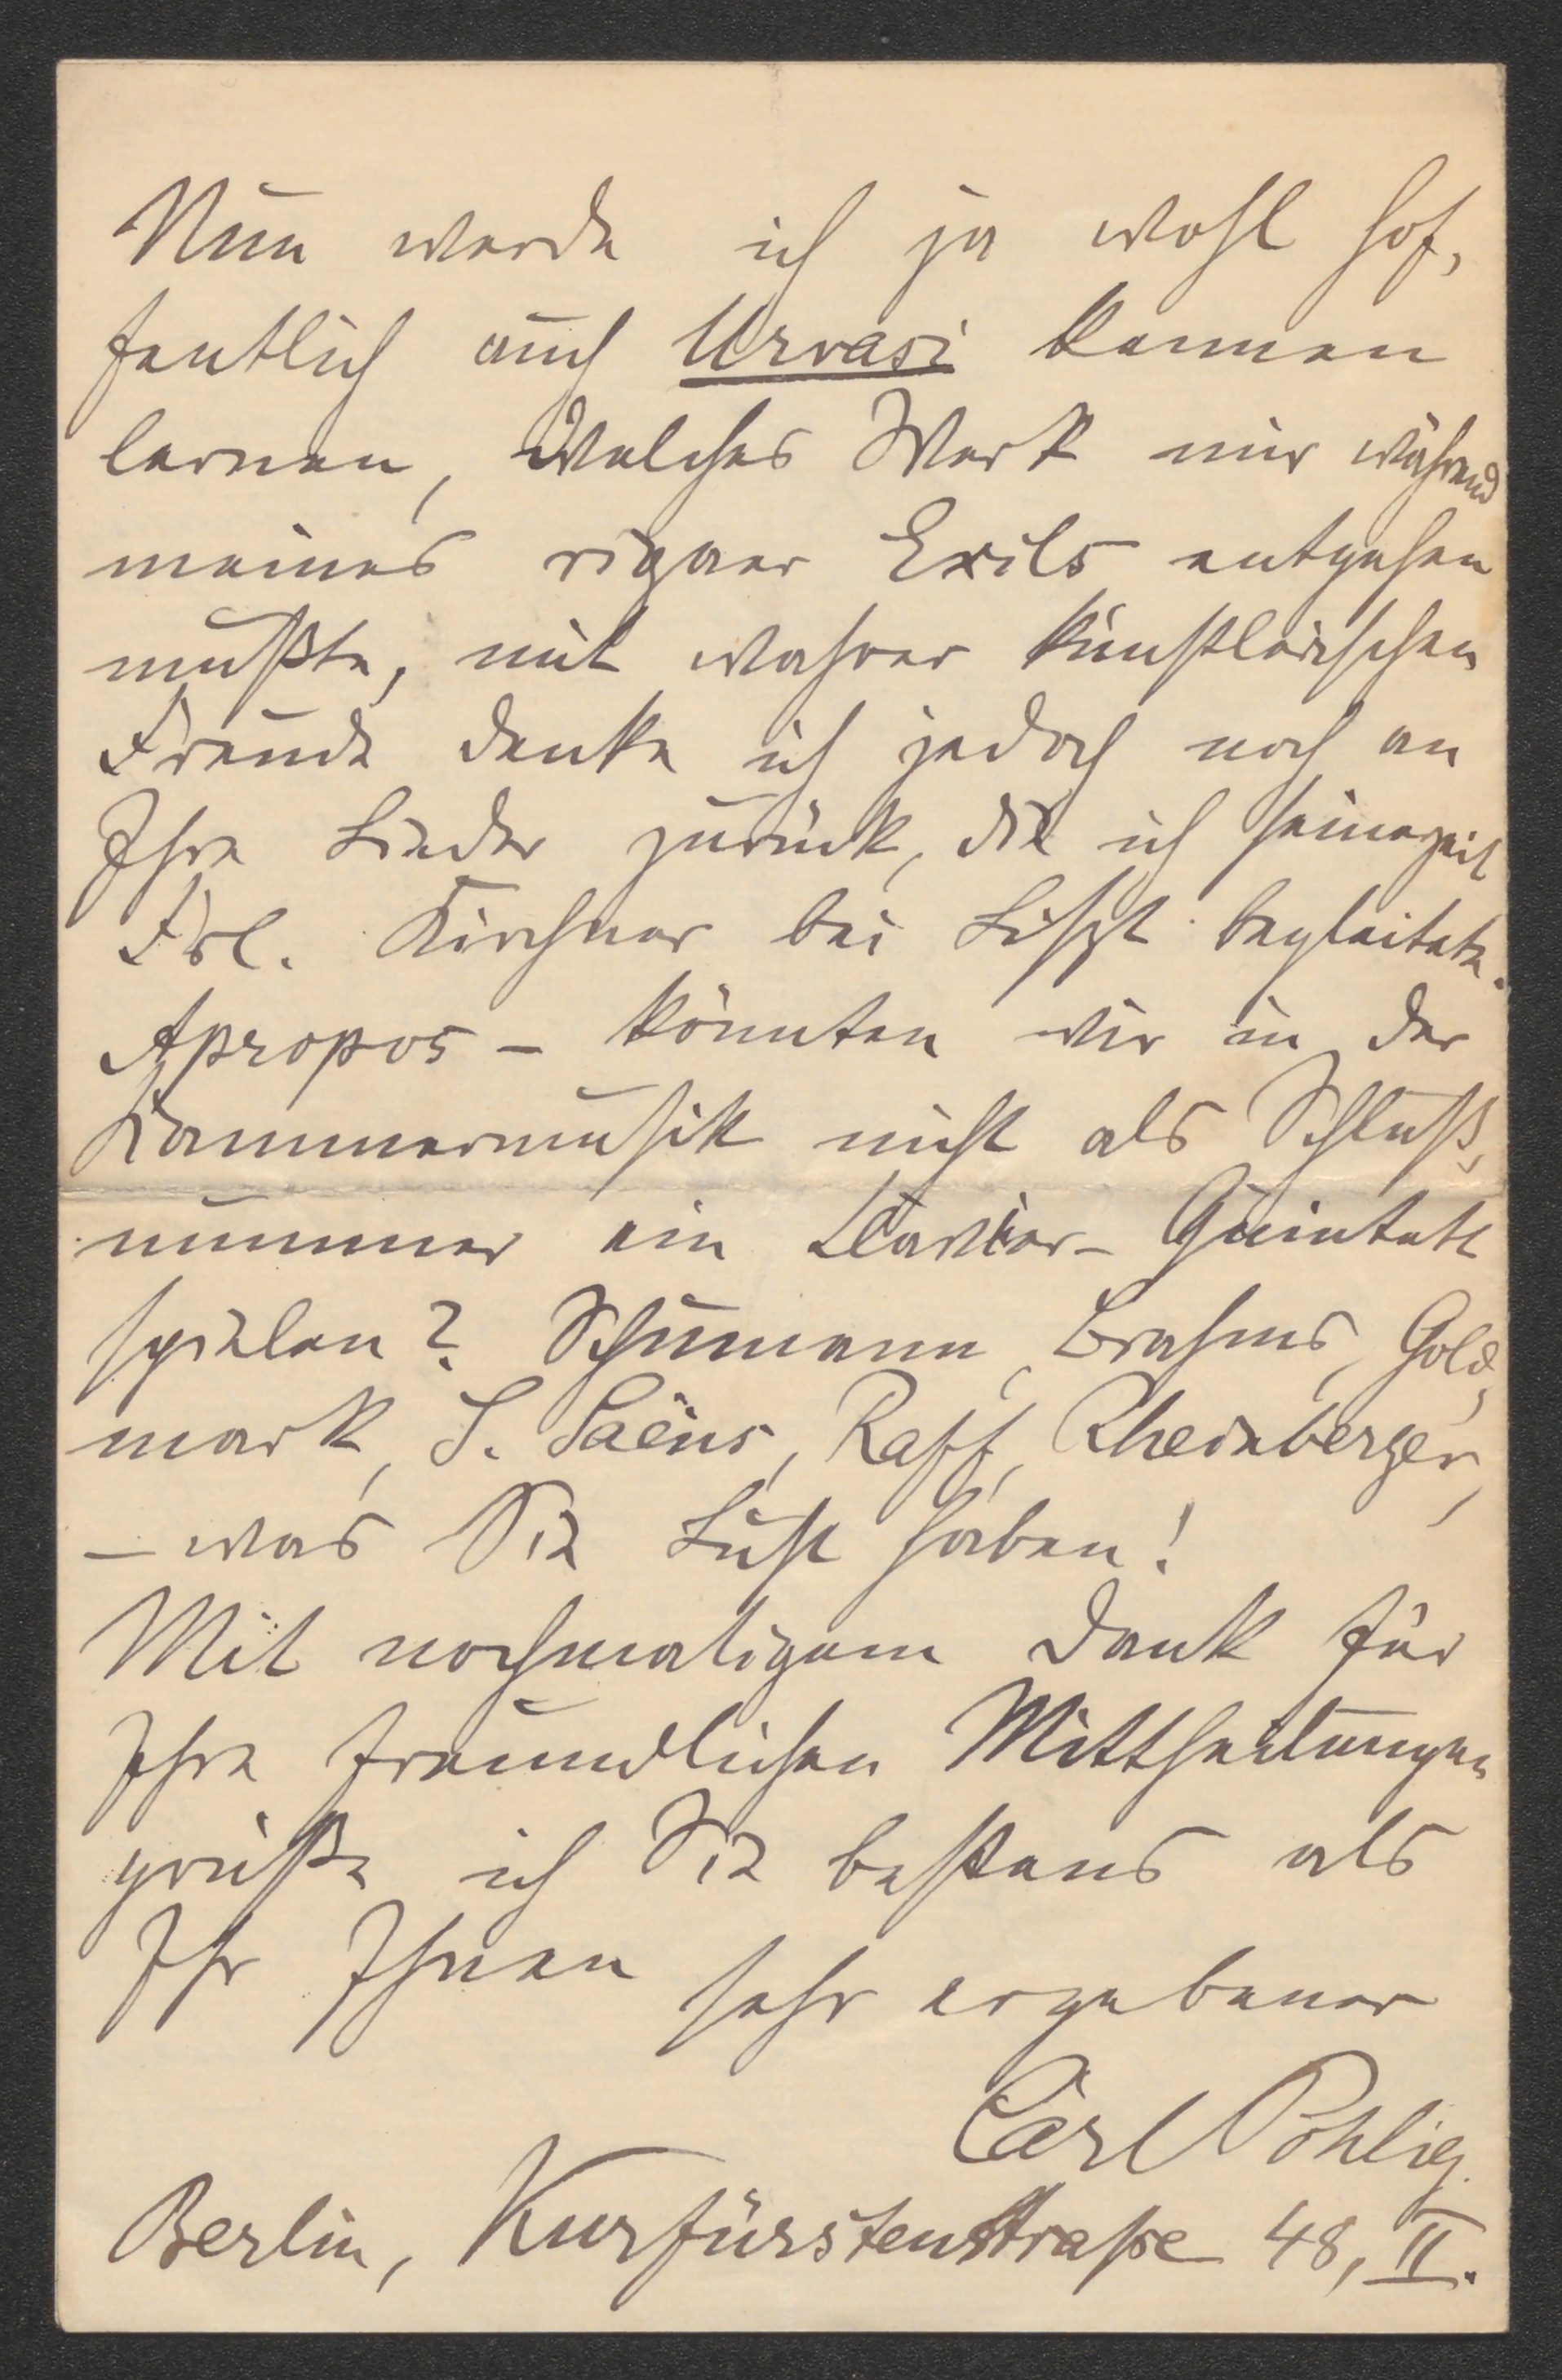 Nun werde ich ja wohl hof,
fentlich auch Urvasi kennen
lernen, welches Werk mir während
meines rigaer Exils entgehen
mußte, mit wahrer künstlerischen
Freude denke ich jedoch noch an
Ihre Lieder zurück, die ich seinerzeit
Frl. Kirchner bei Liszt begleitete.
Apropos – könnten wir in der
Kammermusik nicht als Schluß,
nummer ein Clavier-Quintett
spielen? Schumann, Brahms, Gold,
mark, S. Saëns, Raff, Rheinberger,
– was Sie Lust haben!
Mit nochmaligem Dank für
Ihre freundlichen Mittheilungen
grüße ich Sie bestens als
Ihr Ihnen sehr ergebener
Carl Pohlig
Berlin, Kurfürstenstraße 48, II.